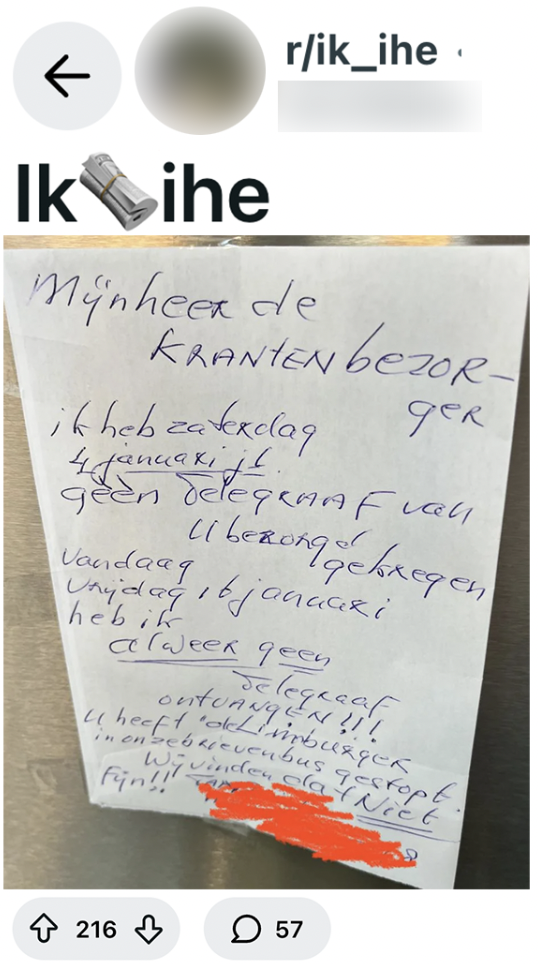 r/ik_ihe
Ik🗞️ihe
Mijnheer de
KRANTENbezor-
ger
ik heb zaterdag
4 januari jl.
géén Telegraaf van
U bezorgd
gekregen
Vandaag
vrijdag 16 januari
heb ik
alweer geen
Telegraaf
ontvangen!!!
U heeft "de Limburger
in onze brievenbus gestopt.
Wij vinden dat Niet
Fijn!!!
216
57